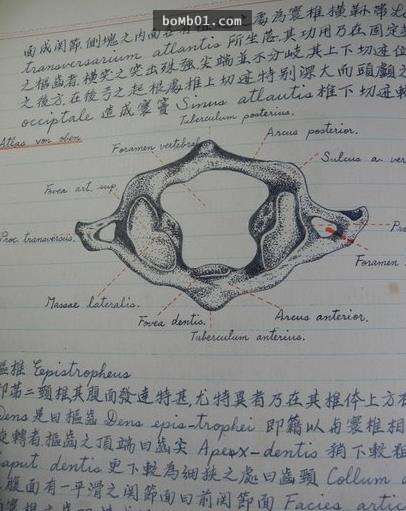 bomb01.com
面成关節,側塊之内面
為寰椎橫靱帶
transversarium atlantis 所坐居.其功用乃在固定
之樞齒.橫突之突出殊強尖端並不分歧.其上下切迹
之後方.在後弓之起根處椎上切迹特別深大而頭顱之
occiptale 造成寰竇 Sinus atlautis 椎下切迹
Tuberculum posterius.
Atlas von oben
Foramen vertebral
Arcus posterior.
Sulcus a. ver
Fovea art. sup.
Proc. transversus.
Foramen
Massae lateralis.
Fovea dentis.
Arcus anterior.
Tuberculum anterius.
樞椎 Eepistropheus
即第二頸椎其腹面發達特甚,尤特異者乃在其椎体上方
Dens 是曰樞齒 Dens epis-trophei 即籍以與寰椎相
旋轉者樞齒之頂端曰齒尖 Apex-dentis 稍下較粗
caput dentis 更下較為細狹之處曰齒頸 Collum
腹面有一平滑之关節面曰前关節面 Facies artic